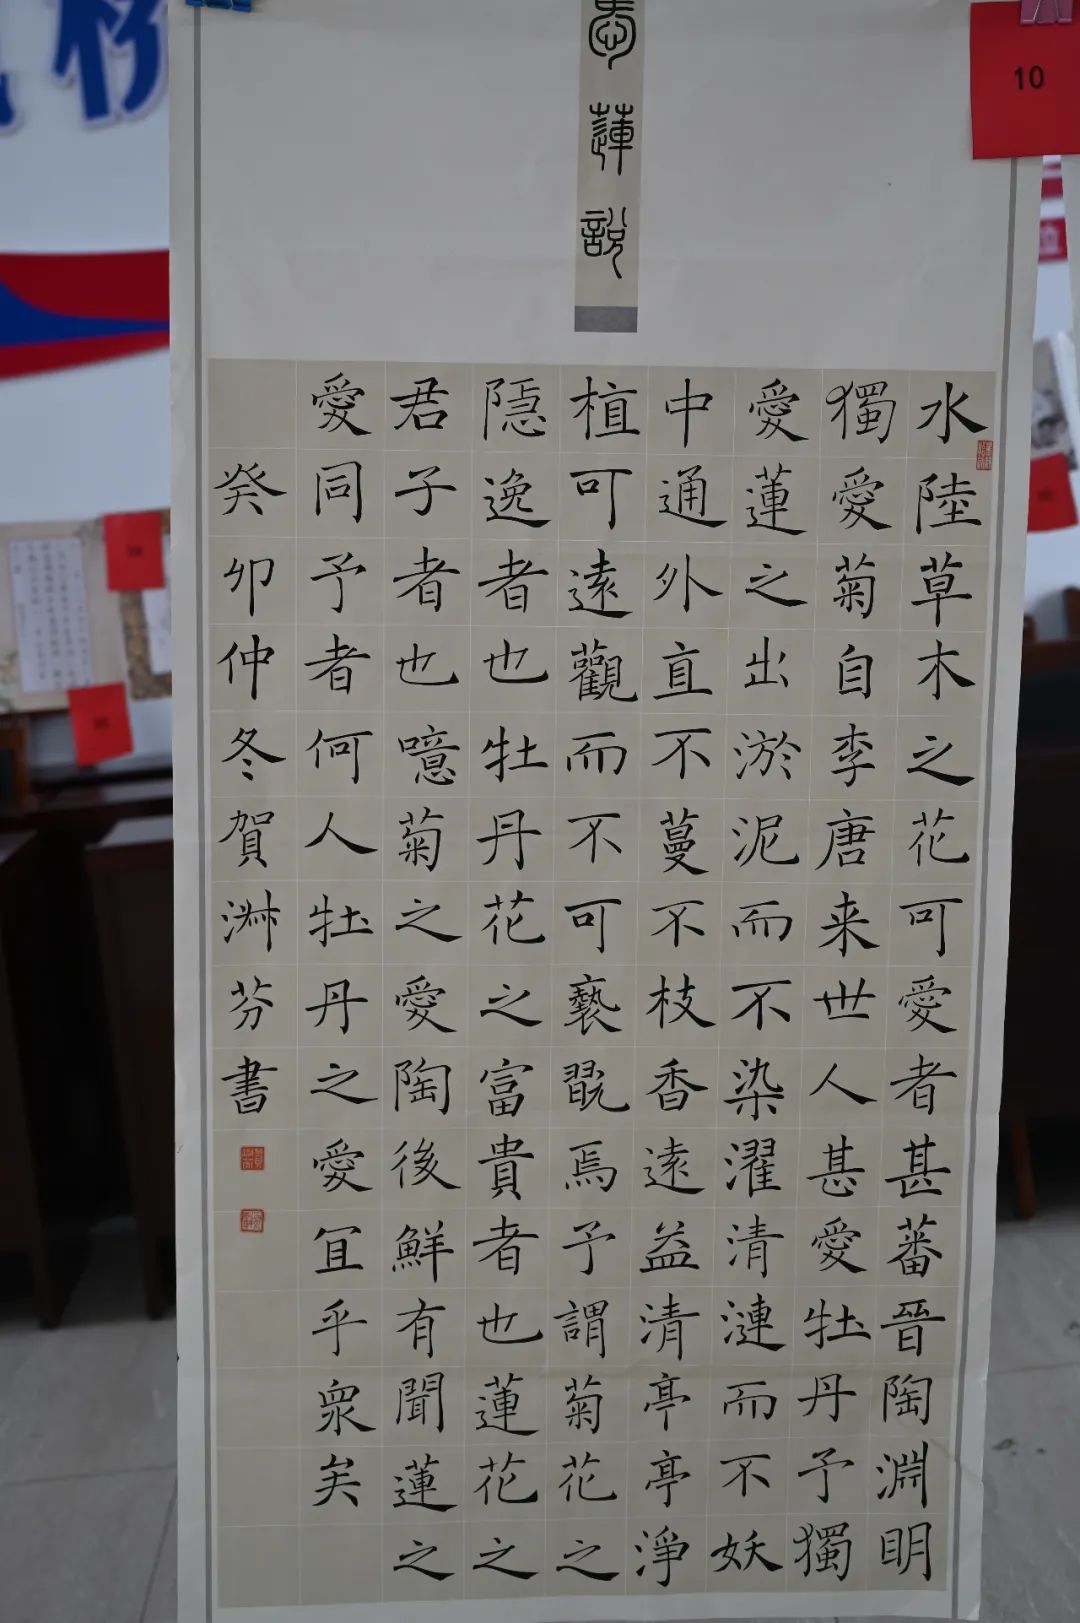 愛蓮說
10
水陸草木之花可愛者甚蕃晉陶淵明
獨愛菊自李唐来世人甚愛牡丹予獨
愛蓮之出淤泥而不染濯清漣而不妖
中通外直不蔓不枝香遠益清亭亭淨
植可遠觀而不可褻翫焉予謂菊花之
隱逸者也牡丹花之富貴者也蓮花之
君子者也噫菊之愛陶後鮮有聞蓮之
愛同予者何人牡丹之愛宜乎衆矣
癸卯仲冬賀淑芬書